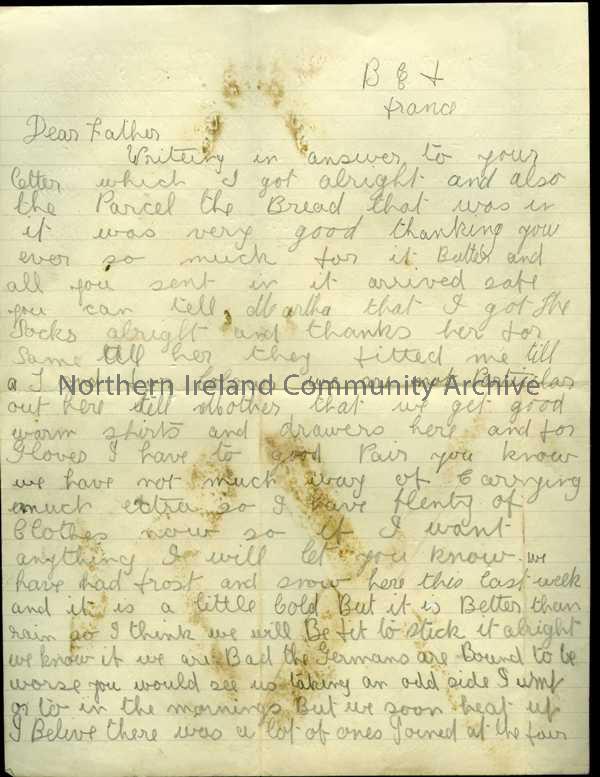 B E F
France
Dear Father
Writing in answer to your
letter which I got alright and also
the Parcel the Bread that was in
it was very good thanking you
ever so much for it Butter and
all you sent in it arrived safe
you can tell Martha that I got the
Socks alright and thanks her for
Same till her they fitted me till
a T
Northern Ireland Community Archive
out here till Mother that we get good
warm shirts and drawers here and for
Gloves I have to good Pair you know
we have not much way of Carrying
much extra so I have plenty of
Clothes now so if I want
anything I will let you know we
have had frost and snow here this last week
and it is a little Cold But it is Better than
rain so I think we will Be fit to stick it alright
we know if we are Bad the Germans are Bound to be
worse you would see us taking an odd side Jump
or to in the mornings But we soon heat up
I Belive there was a lot of ones Joined at the fair